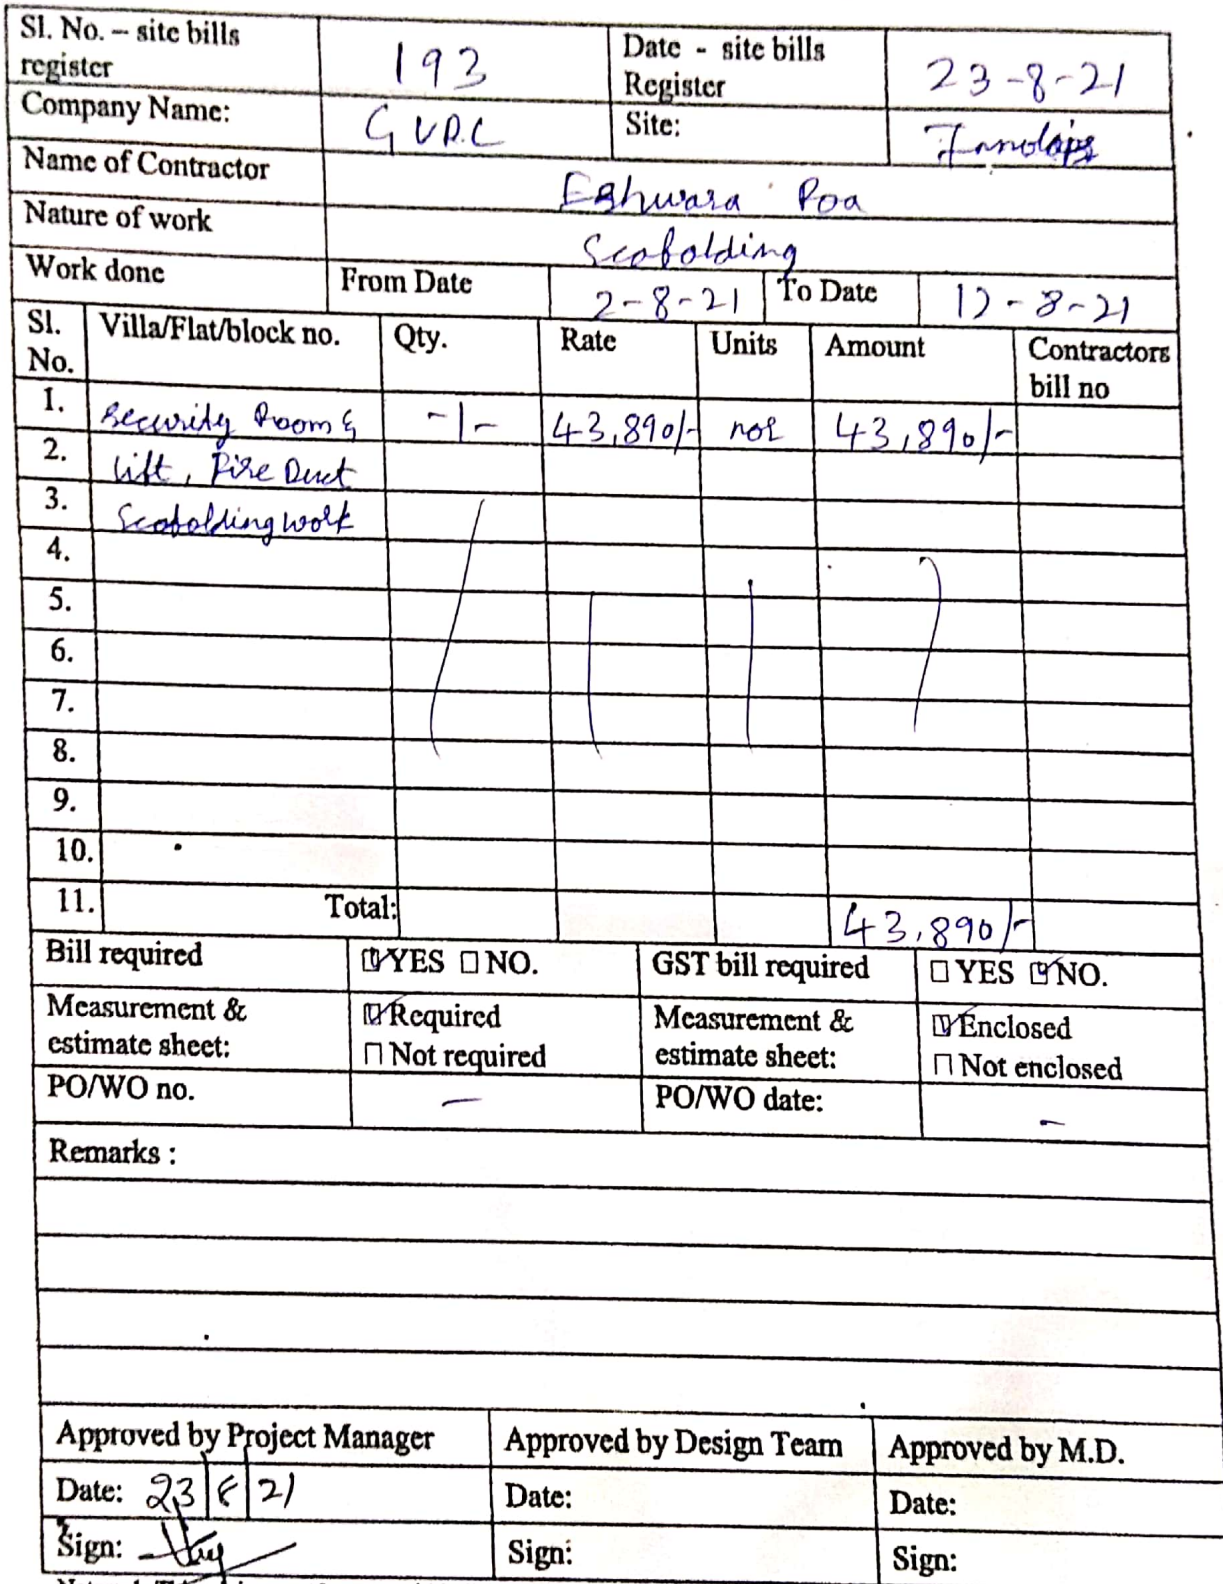 Sl. No. – site bills register 193 Date - site bills Register 23-8-21
Company Name: GVDC Site:
Name of Contractor Eshwara Poa
Nature of work Scafolding
Work done From Date 2-8-21 To Date 12-8-21
Sl. No. Villa/Flat/block no. Qty. Rate Units Amount Contractors bill no
1. Security Room & -1- 43,890/- nos 43,890/-
2. lift, Fire Duct
3. Scafolding work
4.
5.
6.
7.
8.
9.
10.
11. Total: 43,890/-
Bill required ☑YES ☐NO. GST bill required ☐YES ☑NO.
Measurement & estimate sheet: ☑Required ☐Not required Measurement & estimate sheet: ☑Enclosed ☐Not enclosed
PO/WO no. – PO/WO date: –
Remarks :
Approved by Project Manager Approved by Design Team Approved by M.D.
Date: 23/8/21 Date: Date:
Sign: Sign: Sign: